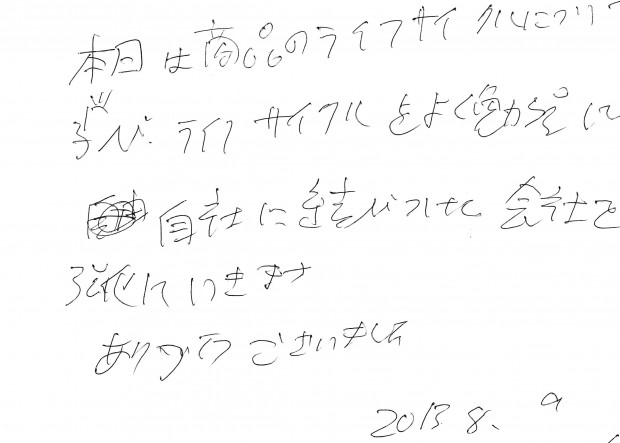 本日は商品のライフサイクルについて
学び ライフサイクルをよく勉強に
自社に結びつけ 会社を
強化していきます
ありがとうございました
2013 8. 9